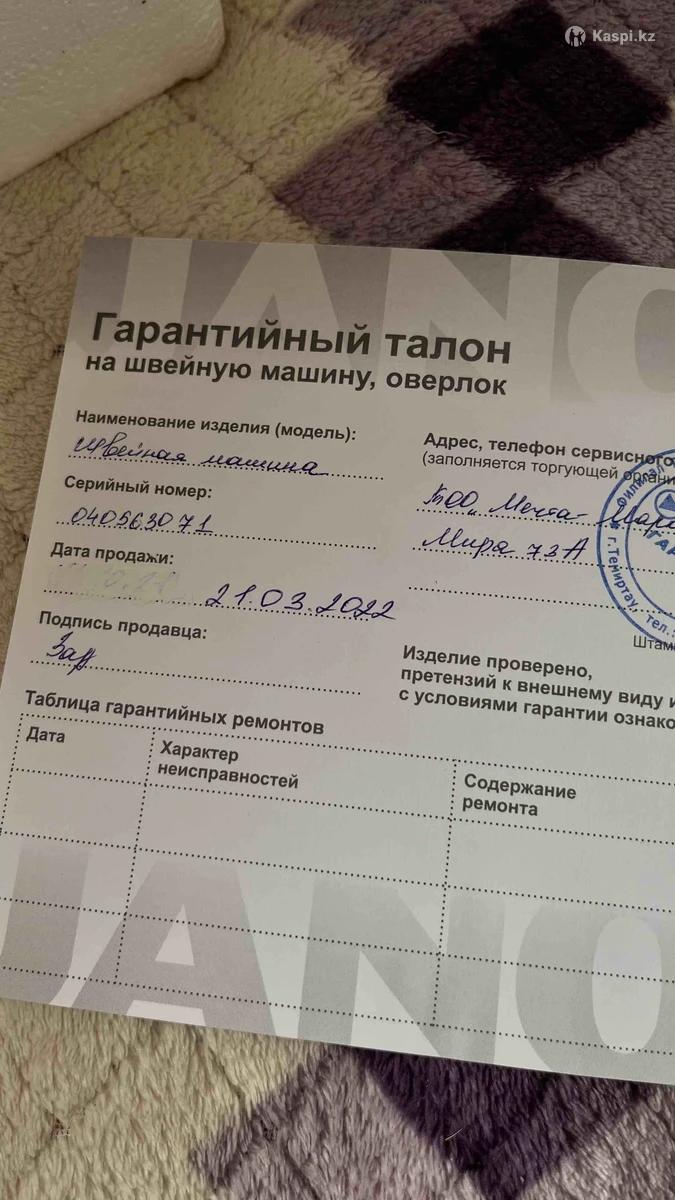 Kaspi.kz
JANO
Гарантийный талон
на швейную машину, оверлок
Наименование изделия (модель):
Швейная машина
Серийный номер:
040563071
Дата продажи:
21.03.2022
Подпись продавца:
Адрес, телефон сервисного
(заполняется торгующей органи
ТОО "Мечта-
Мира 73А
Филиал
г.Темиртау, тел.:
Штам
Изделие проверено,
претензий к внешнему виду и
с условиями гарантии ознако
Таблица гарантийных ремонтов
Дата
Характер
неисправностей
Содержание
ремонта
JANO